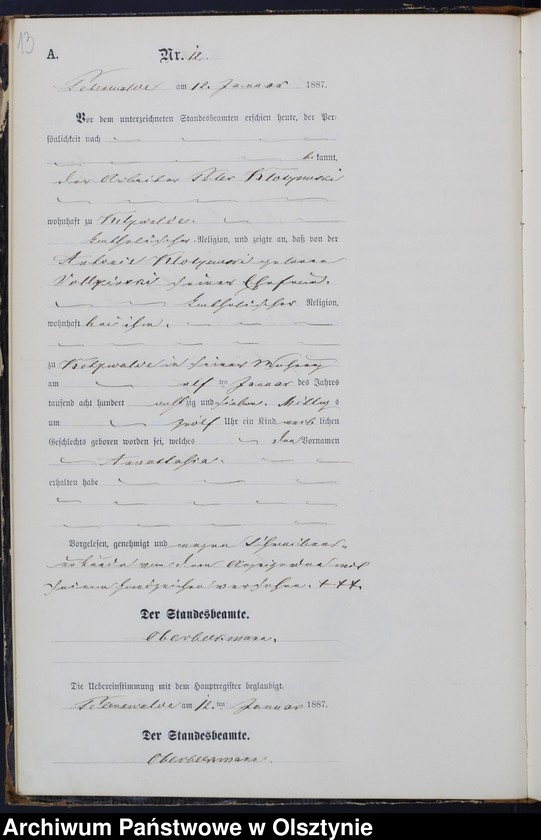 13
A. Nr. 12.
am 12. Januar 1887.
Vor dem unterzeichneten Standesbeamten erschien heute, der Per-
sönlichkeit nach
bekannt,
der Arbeiter Peter
wohnhaft zu
katholischer Religion, und zeigte an, daß von der
geborene
seiner Ehefrau,
katholischer Religion,
wohnhaft bei ihm,
zu in seiner Wohnung
am elf ten Januar des Jahres
tausend acht hundert achtzig und sieben Mittags
um zwölf Uhr ein Kind weiblichen
Geschlechts geboren worden sei, welches den Vornamen
Anastasia
erhalten habe
Vorgelesen, genehmigt und wegen Schreibens-
unkunde von dem Anzeigenden mit
seinem Handzeichen versehen. +++.
Der Standesbeamte.
Die Uebereinstimmung mit dem Hauptregister beglaubigt.
am 12.ten Januar 1887.
Der Standesbeamte.
Archiwum Państwowe w Olsztynie